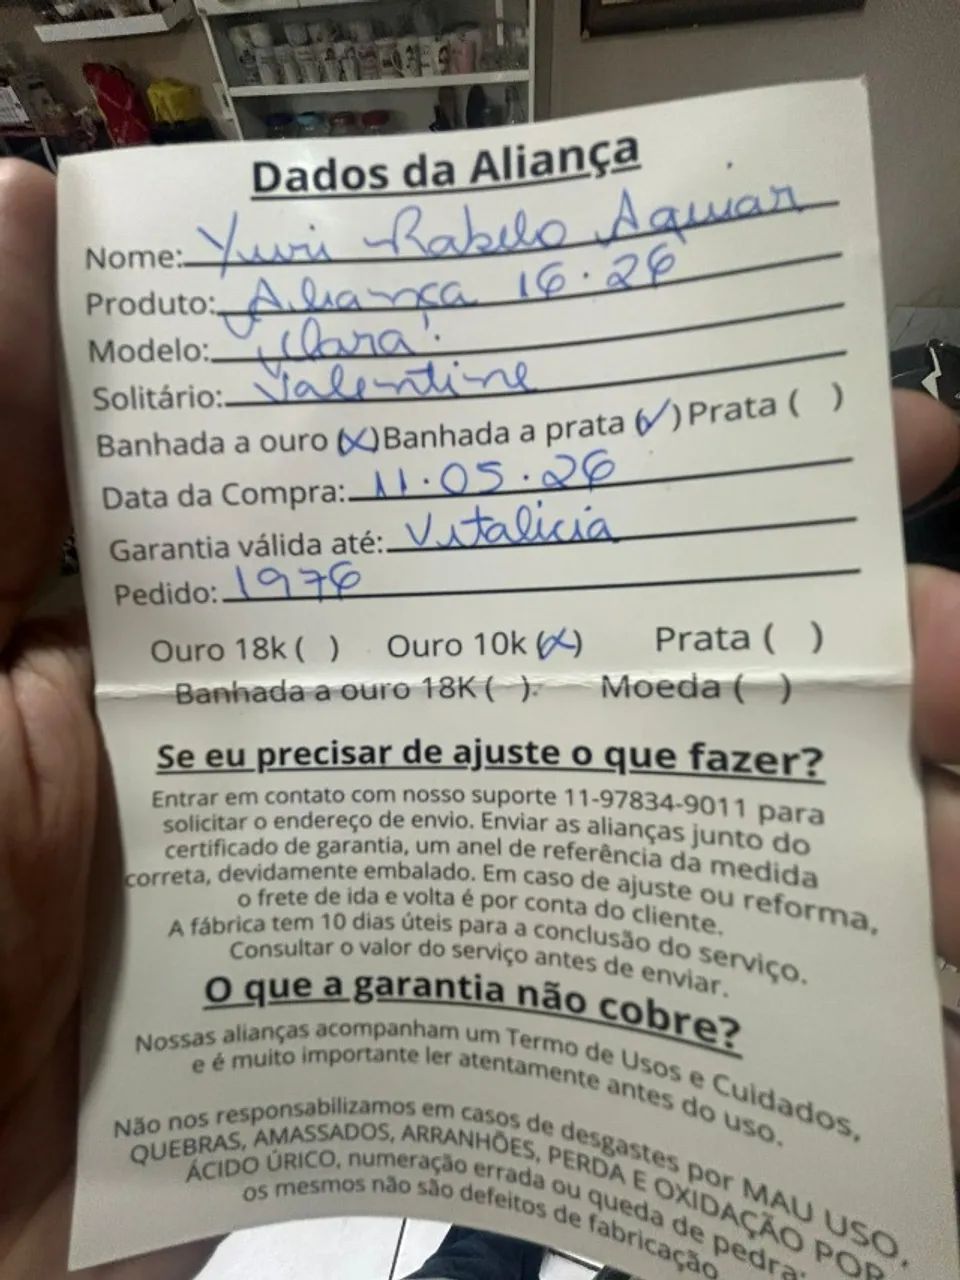 Dados da Aliança
Nome: Yuri Rabelo Aguiar
Produto: Aliança 16.26
Modelo: Clara!
Solitário: Valentine
Banhada a ouro (x) Banhada a prata (✓) Prata ( )
Data da Compra: 11.05.26
Garantia válida até: Vitalicia
Pedido: 1976
Ouro 18k ( ) Ouro 10k (x) Prata ( )
Banhada a ouro 18K ( ). Moeda ( )
Se eu precisar de ajuste o que fazer?
Entrar em contato com nosso suporte 11-97834-9011 para
solicitar o endereço de envio. Enviar as alianças junto do
certificado de garantia, um anel de referência da medida
correta, devidamente embalado. Em caso de ajuste ou reforma,
o frete de ida e volta é por conta do cliente.
A fábrica tem 10 dias úteis para a conclusão do serviço.
Consultar o valor do serviço antes de enviar.
O que a garantia não cobre?
Nossas alianças acompanham um Termo de Usos e Cuidados,
e é muito importante ler atentamente antes do uso.
Não nos responsabilizamos em casos de desgastes por MAU USO,
QUEBRAS, AMASSADOS, ARRANHÕES, PERDA E OXIDAÇÃO POR
ÁCIDO ÚRICO, numeração errada ou queda de pedra;
os mesmos não são defeitos de fabricação